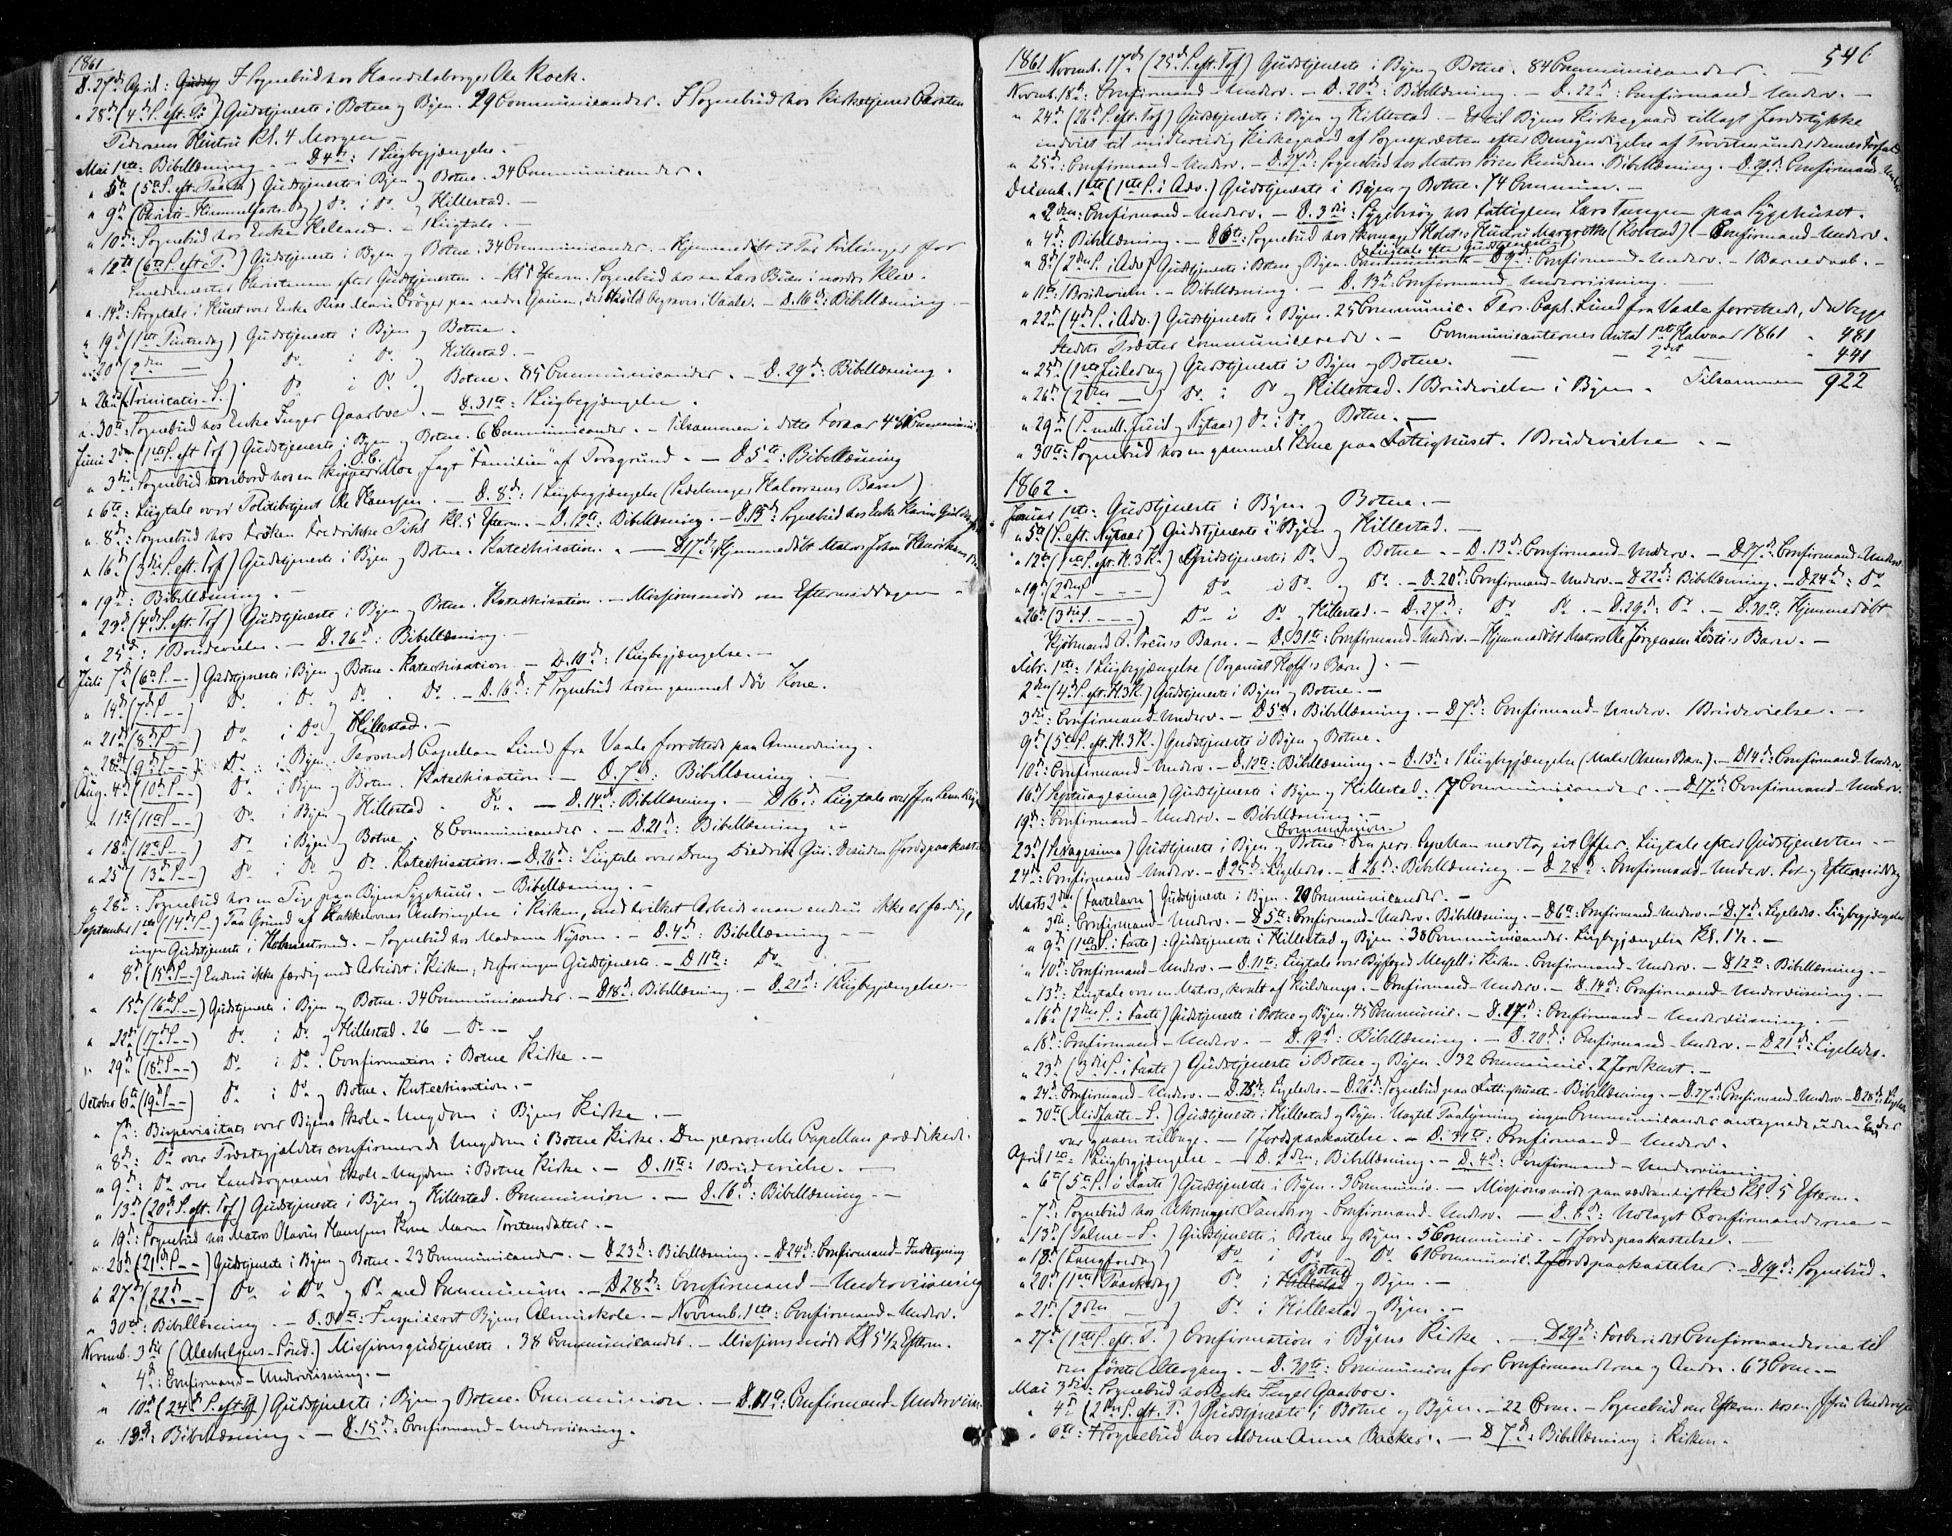 1861
D. 27de April: I Sognebud hos Handelsborger Ole Rock.
" 28d (4de S. eft. P.) Gudstjeneste i Botne og Byen. 29 Communicander. I Sognebud hos Kirketjener Carsten
Pedersens Hustru Kl. 4 Morgen. –
Mai 1ste: Bibellæsning. – D. 4de: 1 Liigbegjængelse. –
" 5te (5te S. eft. Paaske) Gudstjeneste i Byen og Botne. 34 Communicander.
" 9de (Christi-Himmelfarts-Dag) Do i Do og Hillestad. –
" 10de: Sognebud hos Enke Helland. – 1 Liigtale. –
" 12te (6te S. eft. P.) Gudstjeneste i Byen og Botne. 34 Communicander. – Hjemmedøbt et Par Tvillinger for
Smedmester Christensen efter Gudstjenesten. – Kl 5 Efterm. Sognebud hos en Lars Buer i nordre Klev.
" 14de: Sørgetale i Huset over Enke
" 19d (1ste Pintsedag) Gudstjeneste i Byen og Botne.
" 20d (2den –) Do i Do og Hillestad. –
" 26de (Trinitatis-S.) Do i Do og Botne. 85 Communicander. – D. 29de: Bibellæsning.
" 30te: Sognebud hos Enke Inger Gaarboe. – D. 31te: 1 Liigbegjængelse.
Juni 2den (1ste S. eft Tref) Gudstjeneste i Byen og Botne. 6 Communicander. – Tilsammen i dette Foraar
" 3die: Sognebud ombord hos en Skipper Moe, Jagt "Familien" af Porsgrund. – D. 5te: Bibellæsning
" 6te: Liigtale over Politibetjent Ole Hansen. – D. 8de: 1 Liigbegjængelse (Sadelmager Halvorsens Barn)
" 8d: Sognebud hos Frøken Fredrikke Kl. 5 Efterm. – D. 12te: Bibellæsning. – D. 15d: Sognebud hos Enke Karine
" 16d (3die S. eft. Tref) Gudstjeneste i Byen og Botne. Katechisation. – D. 17d: Hjemmedøbt Matros Johan Henriksens
" 19d: Bibellæsning. –
" 23d (4de S. eft. Tref) Gudstjeneste i Byen og Botne. Katechisation. – Missionsmøde om Eftermiddagen –
" 25d: 1 Brudevielse. – D. 26d: Bibellæsning. –
Juli 7d (6te S. – –) Gudstjeneste i Byen og Botne. Katechisation. – D. 10d: 1 Liigbegjængelse. –
" 14d (7de S – –) Do i Do og Do. Do. – D. 16d: I Sognebud hos en gammel døv Kone.
" 21d (8de S – –) Do i Do og Hillestad. –
" 28d (9de S – –) Do i Byen. Personel Capellan Lund fra Vaale forrettede paa Anmodning.
Aug. 4de (10de S – –) Do i Byen og Botne. Katechisation. – D. 7d: Bibellæsning –
" 11te (11te S – –) Do i Byen og Hillestad. Do. – D. 14d: Bibellæsning. – D. 16d: Liigtale over
" 18d (12te S – –) Do i Byen og Botne. 8 Communicander. – D. 21d: Bibellæsning –
" 25d (13de S – –) Do i Do og Do. Katechisation. – D. 26d: Liigtale over Dreng Diedrik
" 28d: Sognebud hos en Pige paa Byens Sygehuus. – Bibellæsning. –
September 1ste (14de S.) Paa Grund af Kakkelovnes Anbringelse i Kirken, med hvilket Arbeide man endnu ikke er færdig,
ingen Gudstjeneste i Holmestrand. – Sognebud hos Madame Nysom. – D. 4d: Bibellæsning –
" 8d (15de S – –) Endnu ikke færdig med Arbeidet i Kirken; derfor ingen Gudstjeneste. – D. 11te: Do –
" 15d (16de S – –) Gudstjeneste i Byen og Botne. 34 Communicander. – D. 18d. Bibellæsning – D. 21d: 1 Liigbegjængelse. –
" 22d (17de S – –) Do i Do og Hillestad. 26 – Do –
" 29d (18de S – –) Do i Do. Confirmation i Botne Kirke. –
October 6te (19de S – –) Do i Do og Botne. Katechisation. –
" 7d: Bispevisitats over Byens Skole-Ungdom i Byens Kirke. –
" 8d: Do over Præstegjældets confirmerede Ungdom i Botne Kirke. Den personelle Capellan prædikede.
" 9d: Do over Landsognenes Skole-Ungdom i Botne Kirke. – D. 11te: 1 Brudevielse. –
" 13d (20de S. eft. Tref) Gudstjeneste i Byen og Hillestad. Communion. – D. 16d: Bibellæsning –
" 19d: Sognebud hos Matros Olavus Hansens Kone Maren Torstensdatter. –
" 20d (21de S – –) Gudstjeneste i Byen og Botne. 23 Communicander. – D. 23d: Bibellæsning. – D. 24d: Confirmand-Indtegning
" 27d (22de – –) Do i Do og Do med Communion. – D. 28d: Confirmand-Underviisning
" 30te: Bibellæsning. – D. 31te: Inspiceret Byens Almuskole. – Novemb. 1ste: Confirmand-Underv.
Novemb. 3die (Allehelgens-Sønd.) Missionsgudstjeneste. 38 Communicander. – Missionsmøde Kl 5½ Efterm.
" 4d: Confirmand-Underviisning. –
" 10d (24de S. eft. Tref) Gudstjeneste i Byen og Botne. Communion. – D. 11te: Confirmand-Underviisn.
" 13d: Bibellæsning. – D. 15d: Confirmand-Underviisning.
546
1861 Novemb. 17d (25de S. eft. Tref) Gudstjeneste i Byen og Botne. 84 Communicander. –
Novemb. 18d: Confirmand-Underv. – D. 20d: Bibellæsning. – D. 22d: Confirmand-Underv. –
" 24d (26de S. eft. Tref) Gudstjeneste i Byen og Hillestad. – Et til Byens Kirkegaard tillagt Jordstykke
indviet til midlertidig Kirkegaard af Sognepræsten efter Bemyndigelse af Provsten under dennes Forfald
" 25d: Confirmand-Underv. – D. 27d: Sognebud hos Matros Søren Knudsen. Bibellæsning. – D. 29d: Confirmand-Underv
Decemb. 1ste (1ste S. i Adv.) Gudstjeneste i Byen og Botne. 74 Commun. –
" 2den: Confirmand-Underv. – D. 3die: Sygebesøg hos Fattiglem Lars Tangen paa Sygehuset.
" 4d: Bibellæsning. – D. 6te: Sognebud hos Skomager Holst's Hustru Margrethe (Rolstad). Confirmand-Underv.
Liigtale efter Gudstjenesten
" 8d (2den S. i Adv) Gudstjeneste i Botne og Byen. – D. 9d: Confirmand-Underv. – 1 Barnedaab. –
" 11te: 1 Brudevielse. – Bibellæsning. – D. 13d: Confirmand-Underviisning. –
" 22d (4de S. i Adv.) Gudstjeneste i Byen. 25 Communic. Pers. Capl. Lund fra Vaale forrettede, da begge
Stedets Præster communicerede. – Communicanternes Antal 1ste Halvaar 1861 " 481
" 25d (1ste Juledag) Gudstjeneste i Byen og Botne. – 2det – " 441
" 26d (2den –) Do i Do og Hillestad. 1 Brudevielse i Byen. – Tilsammen 922
" 29d (S. mell. Juul og Nytaar) Do i Do og Botne. –
" 30te: Sognebud hos en gammel Kone paa Fattighuset. 1 Brudevielse. –
1862.
Januar 1ste: Gudstjeneste i Byen og Botne. –
" 5te (S. eft. Nytaar) Gudstjeneste i Byen og Hillestad. –
" 12te (1ste S. eft. H. 3 K.) Gudstjeneste i Do og Botne. – D. 13d: Confirmand-Underv. – D. 17d: Confirmand-Underv
" 19d (2den S – – –) Do i Do og Do. – D. 20d: Confirmand-Underv. – D. 22d: Bibellæsning. – D. 24d: Do
" 26d (3die S. – – –) Do i Do og Hillestad. – D. 27d: Do Do. – D. 29d: Do. – D. 30te: Hjemmedøbt
Kjøbmand Barn. – D. 31te: Confirmand-Underv. – Hjemmedøbt Matros Ole Jørgensen Barn. –
Febr. 1ste: 1 Liigbegjængelse (Organist Hoff's Barn). –
2den (4de S. eft. H. 3 K.) Gudstjeneste i Byen og Botne. –
3die: Confirmand-Underv. – D. 5te: Bibellæsning. – D. 7d: Confirmand-Underv. 1 Brudevielse. –
9d (5te S. eft. H. 3 K.) Gudstjeneste i Byen og Botne.
10d: Confirmand-Underv. – D. 12te: Bibellæsning. – D. 13d: 1 Liigbegjængelse (Maler Olsens Barn). – D. 14d: Confirmand-Underv.
16d (Septuagesima) Gudstjeneste i Byen og Hillestad. 17 Communicander. – D. 17d: Confirmand-Underv.
19d: Confirmand-Underv. – Bibellæsning. –
Communion.
23d (Sexagesima) Gudstjeneste i Byen og Botne Den pers. Capellan modtog sit Offer. Liigtale efter Gudstjenesten. –
24d: Confirmand-Underv. – D. 25d: Ligeledes. – D. 26d: Bibellæsning. – D. 28d: Confirmand-Underv. For- og Eftermiddag
Marts 2den (Fastelavn) Gudstjeneste i Byen. 20 Communicander. –
" 3die: Confirmand-Underv. – D. 5te: Confirmand-Underv. Bibellæsning. – D. 6te: Confirmand-Underv. – D. 7d: Ligeledes. Liigbegjængelse
" 9d (1ste S. i Faste): Gudstjeneste i Hillestad og Byen. 38 Communicander. Liigbegjængelse Kl. 1½. –
" 10d: Confirmand-Underv. – D. 11te: Liigtale over Byfoged Mesell i Kirken. Confirmand-Underv. – D. 12te: Bibellæsning. –
" 13d: Liigtale over en Matros, kvalt af Kuldamp. – Confirmand-Underv. – D. 14d: Confirmand-Underviisning. –
" 16d (2den S. i Faste) Gudstjeneste i Botne og Byen. 45 Communic. – D. 17d: Confirmand-Underviisning –
" 18d: Confirmand-Underv. – D. 19d: Bibellæsning. – D. 20d: Confirmand-Underv. – D. 21d: Ligeledes.
" 23d (3die S. i Faste) Gudstjeneste i Botne og Byen. 32 Communic. 2 Jordkast. –
" 24d: Confirmand-Underv. – D. 25d: Ligeledes. – D. 26d: Sognebud paa Fattighuset. – Bibellæsning. – D. 27d: Confirmand-Underv. – D. 28d: Ligeledes
" 30te (Midfaste-S.) Gudstjeneste i Hillestad og Byen. Uagtet Tanlysning ingen Communicander antegnede uden En, der
var gaaen tilbage. – 1 Jordspaakastelse. – D. 31te: Confirmand-Underv.
April 1ste: 1 Liigbegjængelse – D. 2den: Bibellæsning. – D. 4d: Confirmand-Underviisning
" 6te (5te S. i Faste) Gudstjeneste i Byen. 3 Communic. – Missionsmøde paa sædvanligt Sted Kl. 5 Efterm.
" 7d: Sognebud hos Skomager Tandberg – Confirmand-Underv. – D. 8d: Udtaget Confirmanderne –
" 13d (Palme-S.) Gudstjeneste i Botne og Byen. 5 Communic. – 1 Jordspaakastelse. –
" 18d (Langfredag) Do i Do og Do 61 Communic. 2 Jordspaakastelser. – D. 19d: Sognebud.
Botne
" 20d (1ste Paaskedag) Do i Hillestad og Byen. –
" 21d (2den –) Do i Hillestad og Byen. –
" 27d (1ste S. eft. P.) Confirmation i Byens Kirke. – D. 29d: Forberedet Confirmanderne til
den første Altergang. – D. 30te: Communion for Confirmanderne og Andre. 63 Com. –
Mai 3die: Sognebud hos Enke Inger Gaarboe.
" 4d (2den S. eft. P.) Gudstjeneste i Botne og Byen. – 22 Com. – Sognebud om Efterm. hos en
" 6te: I Sognebud hos Mdme Anne Backer. – D. 7d: Bibellæsning i Kirken.